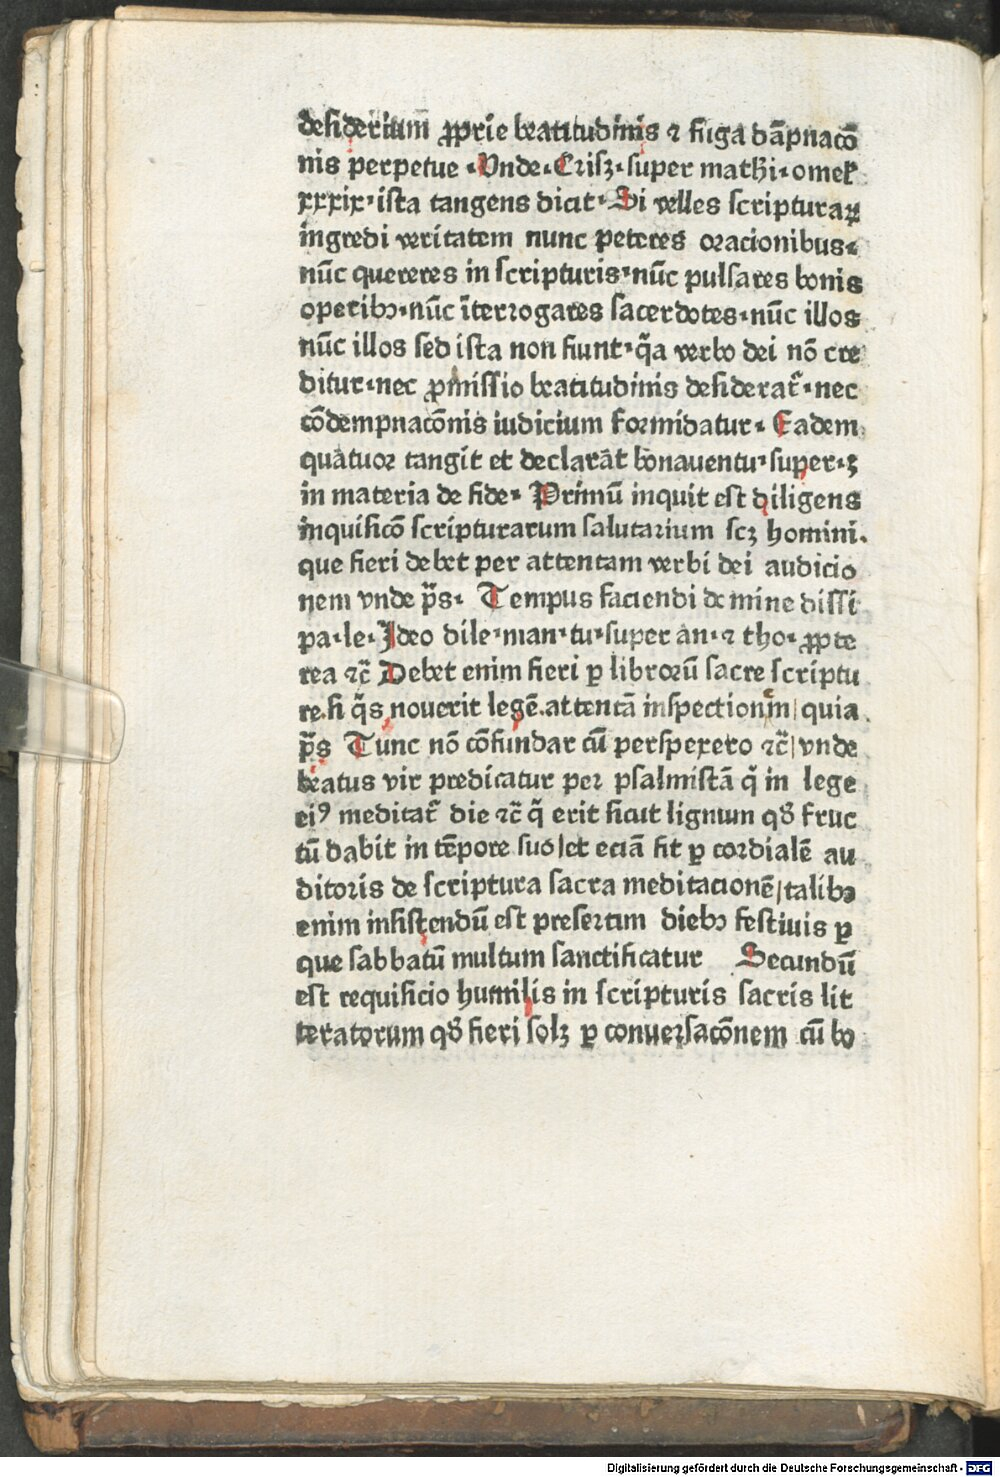 desiderium ꝓprie beatitudinis ⁊ fuga dāpnacō
nis perpetue · Unde · Crisꝫ · super mathi · omel̕
xxxix · ista tangens dicit · Si velles scripturaꝝ
ingredi veritatem nunc peteres oracionibus ·
nūc quereres in scripturis · nūc pulsares bonis
operibꝫ · nūc īterrogares sacerdotes · nūc illos
nūc illos sed ista non fiunt · q̄a verbo dei nō cre
ditur · nec ꝓmissio beatitudinis desiderat᷑ · nec
cōdempnacōnis iudicium formidatur · Eadem
quatuor tangit et declarāt bonauentu · super · 3
in materia de fide · Primū inquit est diligens
inquisicō scripturarum salutarium scꝫ homini ·
que fieri debet per attentam verbi dei audicio
nem vnde p̄s · Tempus faciendi de mine dissi
pa · le · Ideo dile · man · tu · super an · ⁊ tho · ꝓpte
rea ⁊c̄ Debet enim fieri ꝑ librorū sacre scriptu
re · si q̄s nouerit legē · attentā inspectionem | quia
p̄s Tunc nō cōfundar cū perspexero ⁊c̄ | vnde
beatus vir predicatur per psalmistā q̄ in lege
eiꝰ meditat᷑ die ⁊c̄ q̄ erit sicut lignum qd̄ fruc
tū dabit in tēpore suo | et eciā fit ꝑ cordialē au
ditoris de scriptura sacra meditacionē | talibꝫ
enim insistendū est presertim diebꝫ festiuis ꝑ
que sabbatū multum sanctificatur Secundū
est requisicio humilis in scripturis sacris lit
teratorum qd̄ fieri solꝫ ꝑ conuersacōnem cū bo
Digitalisierung gefördert durch die Deutsche Forschungsgemeinschaft - DFG